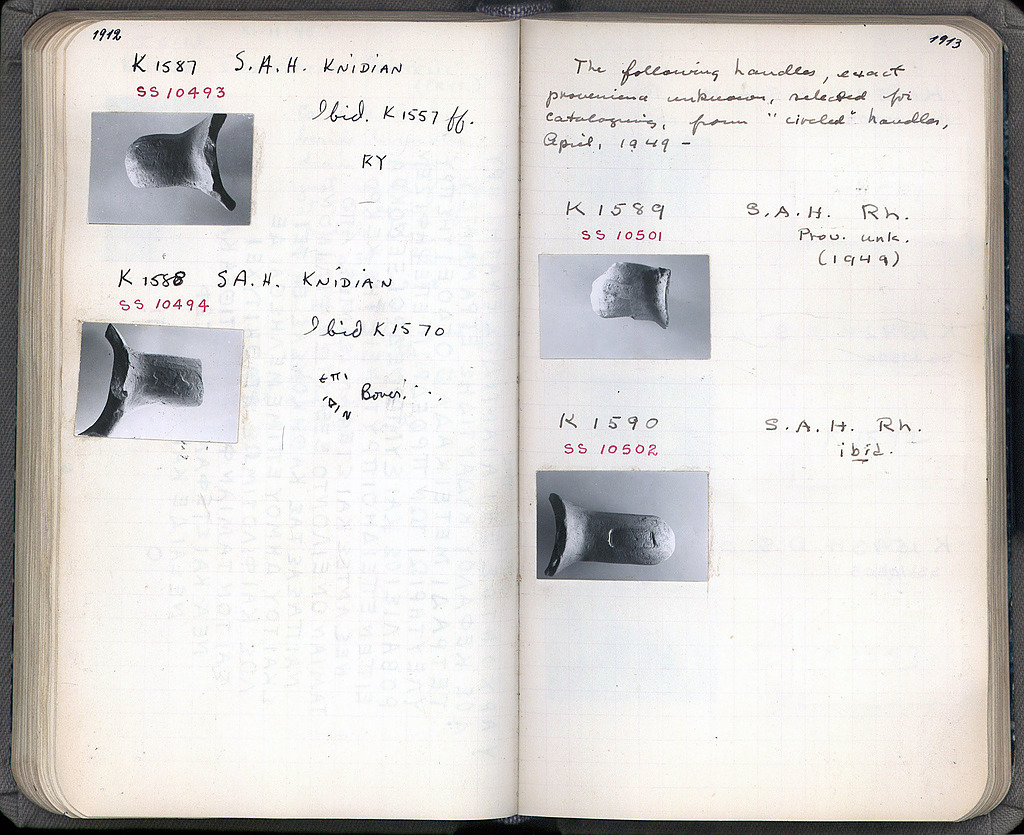 1912
K 1587 S.A.H. KNIDIAN
SS 10493
Ibid. K 1557 ff.
KY
K 1588 SA.H. KNIDIAN
SS 10494
Ibid K 1570
ΕΠΙ
1913
The following handles, exact
provenience unknown, selected for
cataloguing, from "circled" handles,
April, 1949 –
K 1589 S.A.H. Rh.
SS 10501 Prov. unk.
(1949)
K 1590 S.A.H. Rh.
SS 10502 ibid.